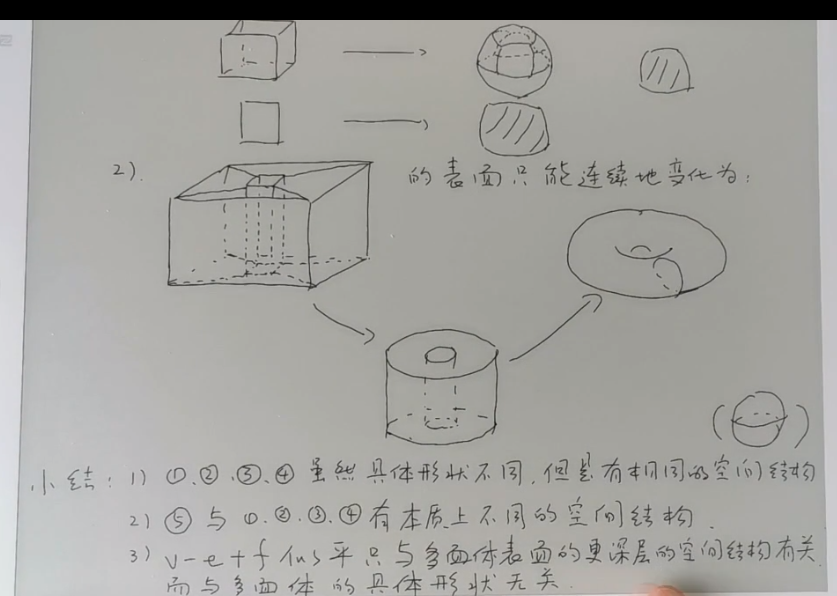 2).
的表面只能连续地变化为:
小结: 1) ①.②.③.④ 虽然具体形状不同,但是有相同的空间结构
2) ⑤与①.②.③.④有本质上不同的空间结构.
3) v-e+f 似乎只与多面体表面的更深层的空间结构有关
而与多面体的具体形状无关.